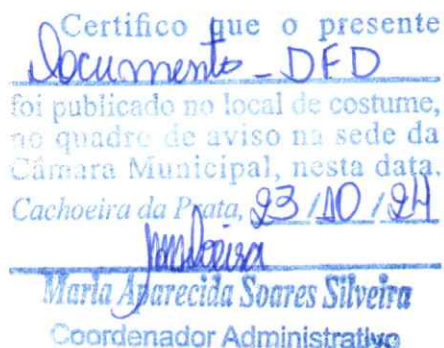 Certifico que o presente
Documento - DFD
foi publicado no local de costume,
no quadro de aviso na sede da
Câmara Municipal, nesta data.
Cachoeira da Prata, 23/10/24
Maria Aparecida Soares Silveira
Coordenador Administrativo